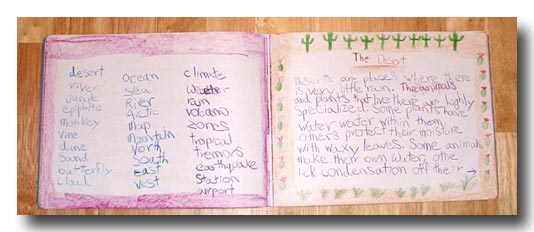 desert
river
jungle
epiphite
monkey
vine
dune
sand
butterfly
cloud
ocean
sea
River
Arctic
map
mountain
North
South
East
West
climate
Weather
rain
volcano
zones
tropical
tremors
earthquake
station
airport
The Desert
Deserts are places where there
is very little rain. The animals
and plants that live there are highly
specialized. Some plants have
water water within them
others protect their moisture
with waxy leaves. Some animals
make their own water, othe
lick condensation off their →